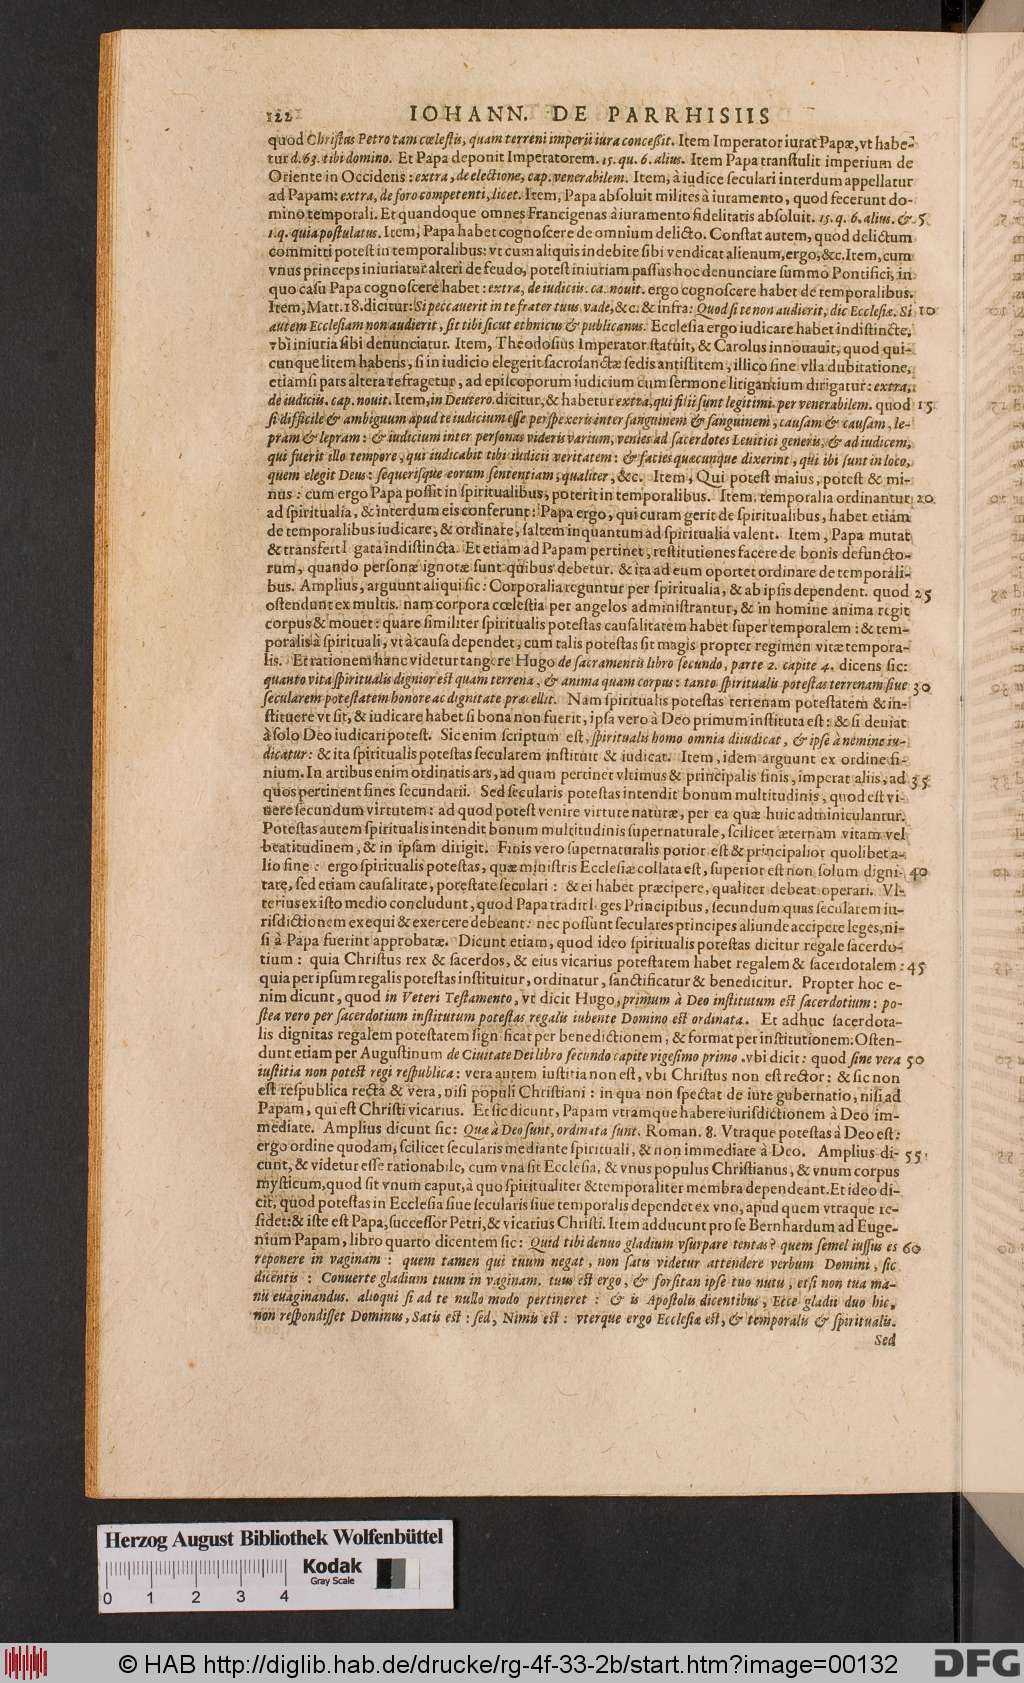 122 IOHANN. DE PARRHISIIS
quod Chriſtus Petro tam cœleſtis, quam terreni imperii iura conceßit. Item Imperator iurat Papæ, vt habe-
tur d. 63. tibi domino. Et Papa deponit Imperatorem. 15. qu. 6. alius. Item Papa tranſtulit imperium de
Oriente in Occidens: extra, de electione, cap. venerabilem. Item, à iudice ſeculari interdum appellatur
ad Papam: extra, de foro competenti, licet. Item, Papa abſoluit milites à iuramento, quod fecerunt do-
mino temporali. Et quandoque omnes Francigenas à iuramento fidelitatis abſoluit. 15. q. 6. alius. & 5
1. q. quia poſtulatus. Item, Papa habet cognoſcere de omnium delicto. Conſtat autem, quod delictum
committi poteſt in temporalibus: vt cum aliquis indebite ſibi vendicat alienum, ergo, &c. Item, cum
vnus princeps iniuriatur alteri de feudo, poteſt iniuriam paſſus hoc denunciare ſummo Pontifici, in
quo caſu Papa cognoſcere habet: extra, de iudiciis. ca. nouit. ergo cognoſcere habet de temporalibus.
Item, Matt. 18. dicitur: Si peccauerit in te frater tuus vade, &c. & infra: Quod ſi te non audierit, dic Eccleſiæ. Si 10
autem Eccleſiam non audierit, ſit tibi ſicut ethnicus & publicanus. Eccleſia ergo iudicare habet indiſtincte,
vbi iniuria ſibi denunciatur. Item, Theodoſius Imperator ſtatuit, & Carolus innouauit, quod qui-
cunque litem habens, ſi in iudicio elegerit ſacroſanctæ ſedis antiſtitem, illico ſine vlla dubitatione,
etiamſi pars altera refragetur, ad epiſcoporum iudicium cum ſermone litigantium dirigatur: extra,
de iudiciis. cap. nouit. Item, in Deutero. dicitur, & habetur extra, qui filii ſunt legitimi. per venerabilem. quod 15
ſi difficile & ambiguum apud te iudicium eſſe perſpexeris inter ſanguinem & ſanguinem, cauſam & cauſam, le-
pram & lepram: & iudicium inter perſonas videris varium, venies ad ſacerdotes Leuitici generis, & ad iudicem,
qui fuerit illo tempore, qui iudicabit tibi iudicii veritatem: & facies quæcunque dixerint, qui ibi ſunt in loco,
quem elegit Deus: ſequeriſque eorum ſententiam, qualiter, &c. Item, Qui poteſt maius, poteſt & mi-
nus: cum ergo Papa poſſit in ſpiritualibus, poterit in temporalibus. Item. temporalia ordinantur 20
ad ſpiritualia, & interdum eis conferunt: Papa ergo, qui curam gerit de ſpiritualibus, habet etiam
de temporalibus iudicare, & ordinare, ſaltem inquantum ad ſpiritualia valent. Item, Papa mutat
& transfert l gata indiſtincta. Et etiam ad Papam pertinet, reſtitutiones facere de bonis defuncto-
rum, quando perſonæ ignotæ ſunt quibus debetur. & ita ad eum oportet ordinare de temporali-
bus. Amplius, arguunt aliqui ſic: Corporalia reguntur per ſpiritualia, & ab ipſis dependent. quod 25
oſtendunt ex multis. nam corpora cœleſtia per angelos adminiſtrantur, & in homine anima regit
corpus & mouet: quare ſimiliter ſpiritualis poteſtas cauſalitatem habet ſuper temporalem: & tem-
poralis à ſpirituali, vt à cauſa dependet, cum talis poteſtas ſit magis propter regimen vitæ tempora-
lis. Et rationem hanc videtur tangere Hugo de ſacramentis libro ſecundo, parte 2. capite 4. dicens ſic:
quanto vita ſpiritualis dignior eſt quam terrena, & anima quam corpus: tanto ſpiritualis poteſtas terrenam ſiue 30
ſecularem poteſtatem honore ac dignitate præcellit. Nam ſpiritualis poteſtas terrenam poteſtatem & in-
ſtituere vt ſit, & iudicare habet ſi bona non fuerit, ipſa vero à Deo primum inſtituta eſt: & ſi deuiat
à ſolo Deo iudicari poteſt. Sic enim ſcriptum eſt, ſpiritualis homo omnia diiudicat, & ipſe à nemine iu-
dicatur: & ita ſpiritualis poteſtas ſecularem inſtituit & iudicat. Item, idem arguunt ex ordine fi-
nium. In artibus enim ordinatis ars, ad quam pertinet vltimus & principalis finis, imperat aliis, ad 35
quos pertinent fines ſecundarii. Sed ſecularis poteſtas intendit bonum multitudinis, quod eſt vi-
uere ſecundum virtutem: ad quod poteſt venire virtute naturæ, per ea quæ huic adminiculantur.
Poteſtas autem ſpiritualis intendit bonum multitudinis ſupernaturale, ſcilicet æternam vitam vel
beatitudinem, & in ipſam dirigit. Finis vero ſupernaturalis potior eſt & principalior quolibet a-
lio fine: ergo ſpiritualis poteſtas, quæ miniſtris Eccleſiæ collata eſt, ſuperior eſt non ſolum digni- 40
tate, ſed etiam cauſalitate, poteſtate ſeculari: & ei habet præcipere, qualiter debeat operari. Vl-
terius ex iſto medio concludunt, quod Papa tradit l ges Principibus, ſecundum quas ſecularem iu-
riſdictionem exequi & exercere debeant: nec poſſunt ſeculares principes aliunde accipere leges, ni-
ſi à Papa fuerint approbatæ. Dicunt etiam, quod ideo ſpiritualis poteſtas dicitur regale ſacerdo-
tium: quia Chriſtus rex & ſacerdos, & eius vicarius poteſtatem habet regalem & ſacerdotalem: 45
quia per ipſum regalis poteſtas inſtituitur, ordinatur, ſanctificatur & benedicitur. Propter hoc e-
nim dicunt, quod in Veteri Teſtamento, vt dicit Hugo, primum à Deo inſtitutum eſt ſacerdotium: po-
ſtea vero per ſacerdotium inſtitutum poteſtas regalis iubente Domino eſt ordinata. Et adhuc ſacerdota-
lis dignitas regalem poteſtatem ſign ficat per benedictionem, & format per inſtitutionem. Oſten-
dunt etiam per Auguſtinum de Ciuitate Dei libro ſecundo capite vigeſimo primo. vbi dicit: quod ſine vera 50
iuſtitia non poteſt regi reſpublica: vera autem iuſtitia non eſt, vbi Chriſtus non eſt rector: & ſic non
eſt reſpublica recta & vera, niſi populi Chriſtiani: in qua non ſpectat de iure gubernatio, niſi ad
Papam, qui eſt Chriſti vicarius. Et ſic dicunt, Papam vtramque habere iuriſdictionem à Deo im-
mediate. Amplius dicunt ſic: Quæ à Deo ſunt, ordinata ſunt. Roman. 8. Vtraque poteſtas à Deo eſt:
ergo ordine quodam, ſcilicet ſecularis mediante ſpirituali, & non immediate à Deo. Amplius di- 55
cunt, & videtur eſſe rationabile, cum vna ſit Eccleſia, & vnus populus Chriſtianus, & vnum corpus
myſticum, quod ſit vnum caput, à quo ſpiritualiter & temporaliter membra dependeant. Et ideo di-
cit, quod poteſtas in Eccleſia ſiue ſecularis ſiue temporalis dependet ex vno, apud quem vtraque re-
ſidet: & iſte eſt Papa, ſucceſſor Petri, & vicarius Chriſti. Item adducunt pro ſe Bernhardum ad Euge-
nium Papam, libro quarto dicentem ſic: Quid tibi denuo gladium vſurpare tentas? quem ſemel iuſſus es 60
reponere in vaginam: quem tamen qui tuum negat, non ſatis videtur attendere verbum Domini, ſic
dicentis: Conuerte gladium tuum in vaginam. tuus eſt ergo, & forſitan ipſe tuo nutu, etſi non tua ma-
nu euaginandus. alioqui ſi ad te nullo modo pertineret: & is Apoſtolis dicentibus, Ecce gladii duo hic,
non reſpondiſſet Dominus, Satis eſt: ſed, Nimis eſt: vterque ergo Eccleſiæ eſt, & temporalis & ſpiritualis.
Sed
Herzog August Bibliothek Wolfenbüttel
Kodak
Gray Scale
0 1 2 3 4
© HAB http://diglib.hab.de/drucke/rg-4f-33-2b/start.htm?image=00132
DFG